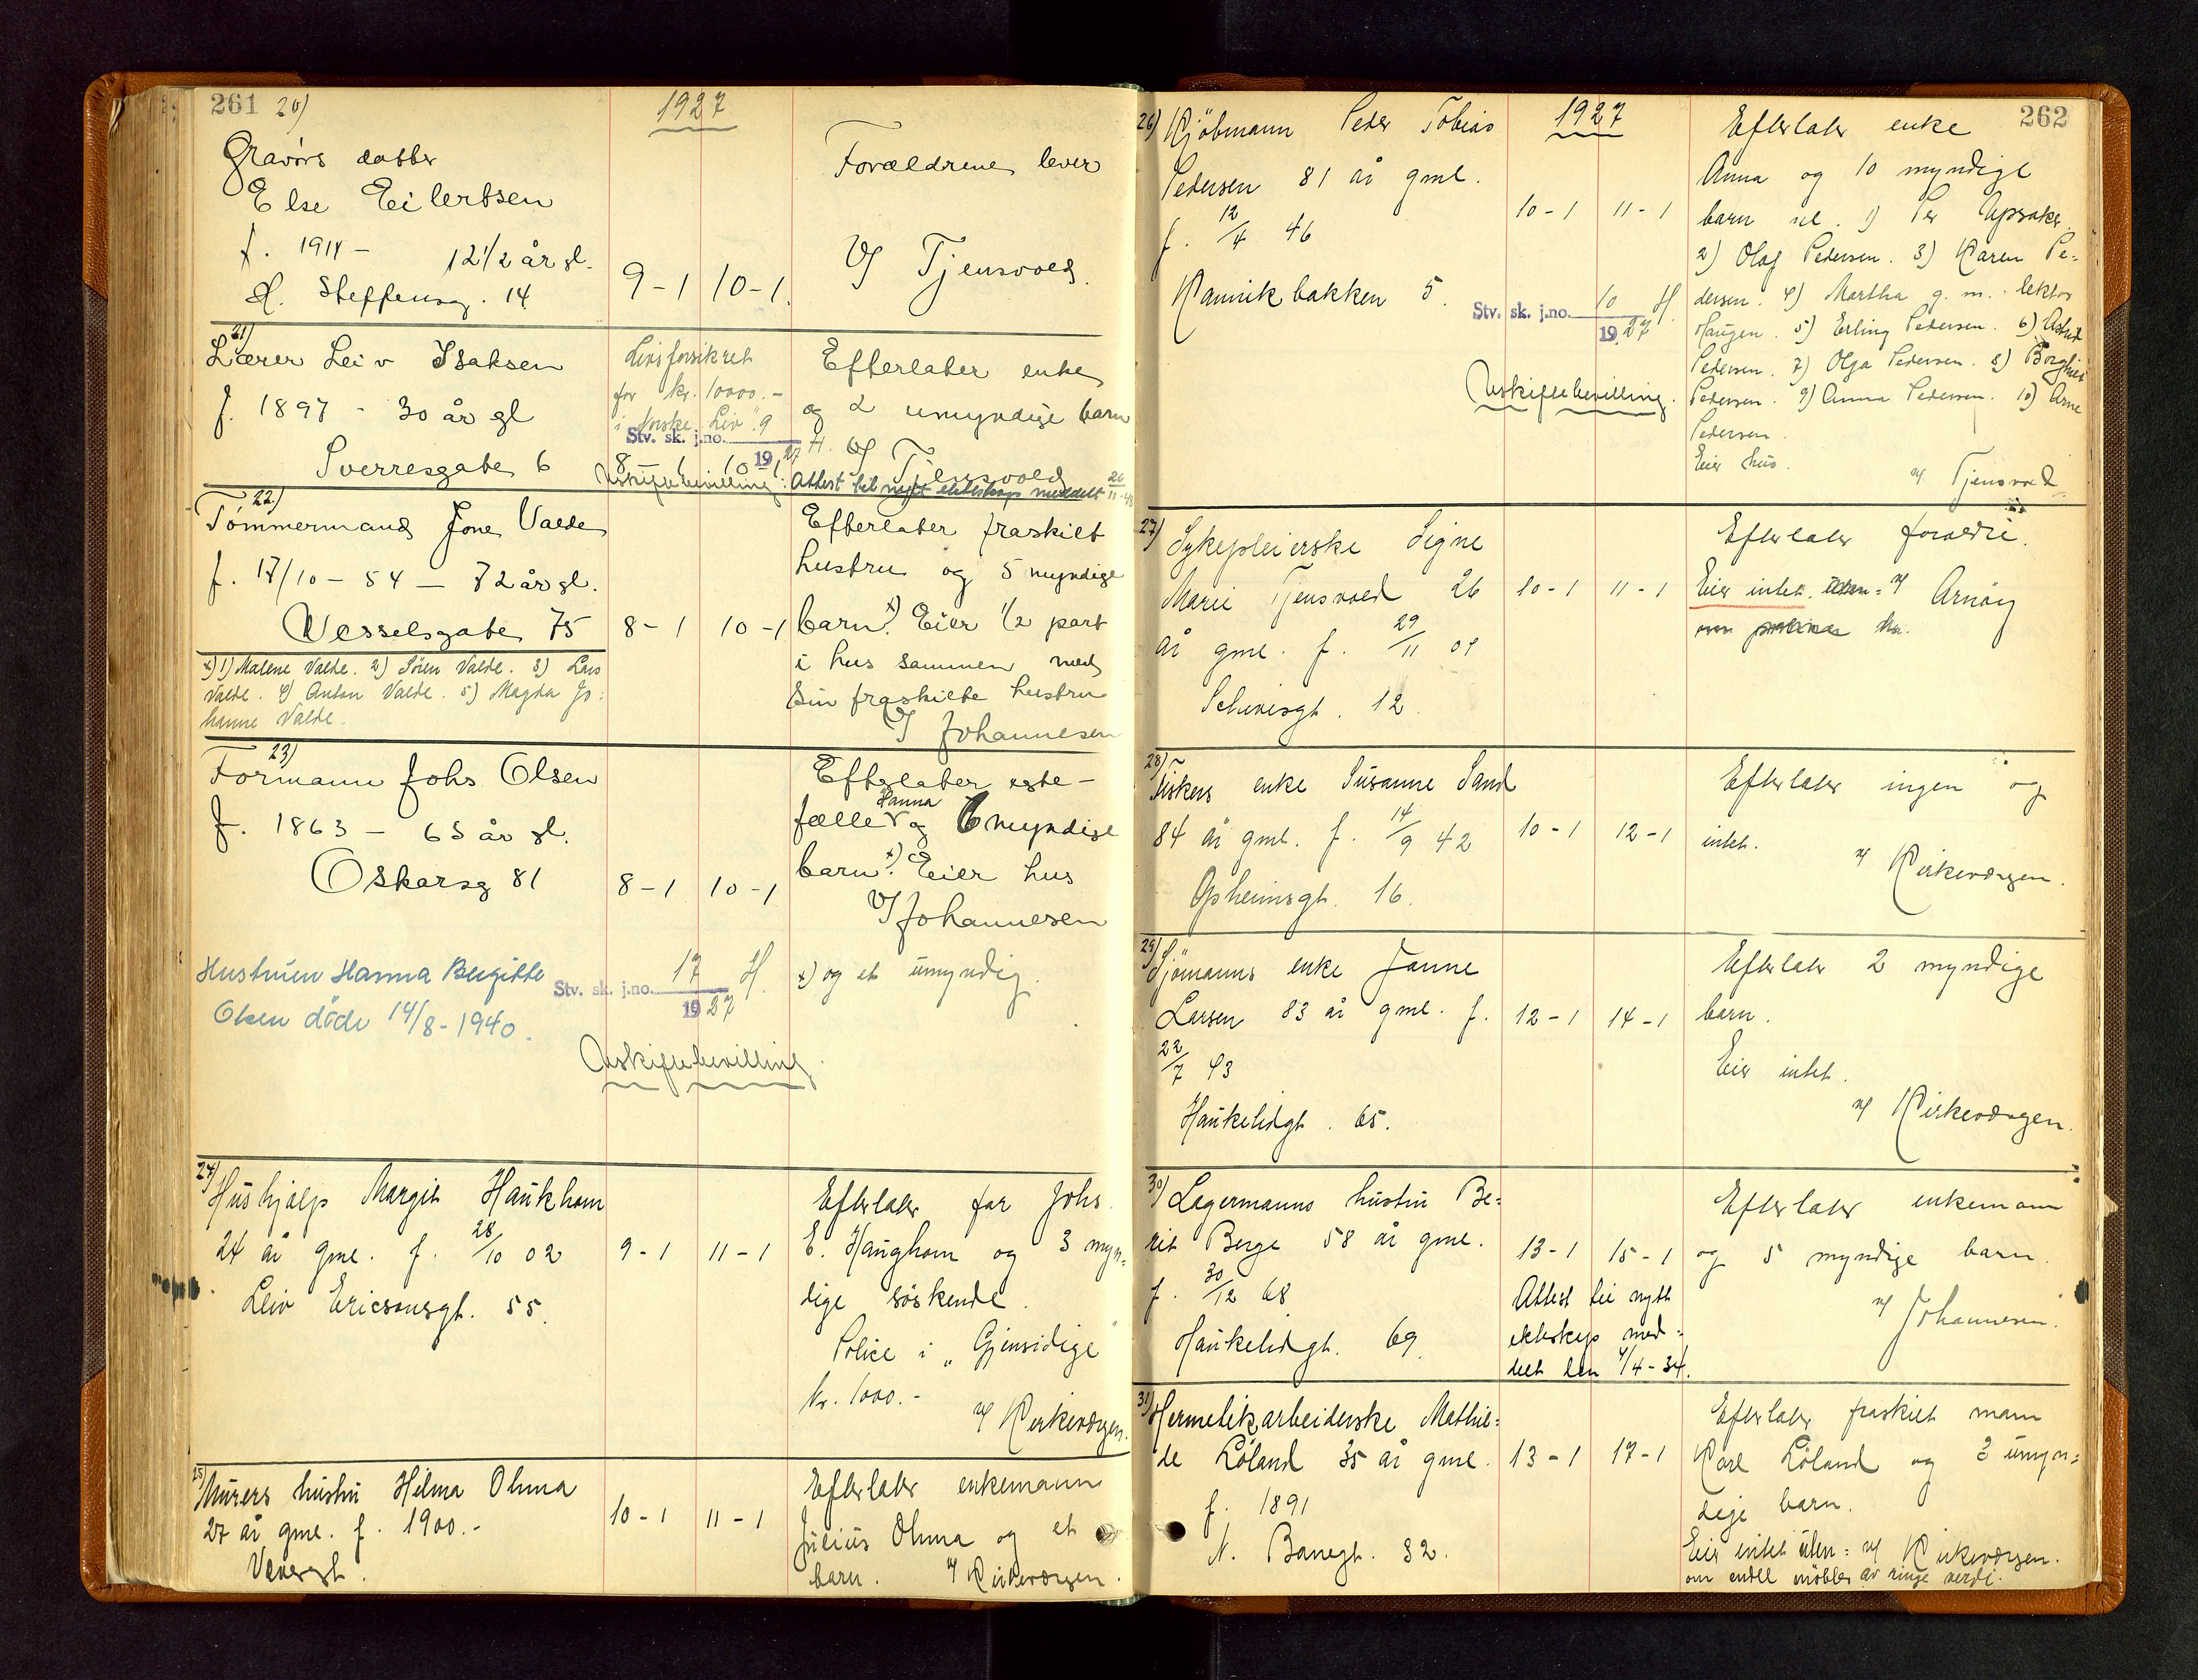 261 20)
1927
Gravørs datter
Else Eilertsen
f. 1914 - 12 1/2 år gl.
H. Steffensg. 14
9-1 10-1.
Forældrene lever
V/ Tjensvold.
21)
Lærer Leiv Isaksen
f. 1897 - 30 år gl
Sverresgate 6
Livsforsikret
for kr. 10000.-
i Norske Liv. 9
Stv. sk. j.no. 19 27 H.
8-1 10-1
Uskiftebevilling.
Efterlater enke
og 2 umyndige barn
V/ Tjensvold
Attest til nytt ekteskap meddelt 26/11-48
22)
Tømmermand Jone Valde
f. 17/10-54 - 72 år gl.
Vesselsgate 75
8-1 10-1
x) 1) Malene Valde. 2) Sören Valde. 3) Lars
Valde. 4) Anton Valde. 5) Magda Jo:
hanne Valde.
Efterlater fraskilt
hustru og 5 myndige
barn x). Eier 1/2 part
i hus sammen med
sin fraskilte hustru
V/ Johannesen
23)
Formann Johs Olsen
f. 1863 - 63 år gl.
Oskarsg 81
8-1 10-1
Efterlater ekte-
Hanna
fælle v og 6 myndige
barn x). Eier hus
V/ Johannesen
Hustruen Hanna Bergitte
Olsen döde 14/8-1940.
Stv. sk. j.no. 17 H.
19 27
x) og et umyndig.
Uskiftebevilling.
24)
Hushjælp Margit Haukhom
24 år gml. f. 28/10 02
Leiv Ericsonsgt. 55.
9-1 11-1
Efterlater far Johs.
E. Haughom og 3 myn=
dige söskende.
Police i "Gjensidige"
kr. 1000.-
v/ Kirkevergen.
25)
Murers hustru Hilma Ohma
27 år gml. f. 1900.-
Vævergt.
10-1 11-1
Efterlater enkemann
Julius Ohma og et
barn. v/ Kirkevergen.
262
1927
26) Kjöbmann Peder Tobias
Pedersen 81 år gml.
f. 12/4 46
Kannikbakken 5.
10-1 11-1
Stv. sk. j.no. 10 H.
19 27
Uskiftebevilling.
Efterlater enke
Anna og 10 myndige
barn 1) Per Upsaker
2) Olaf Pedersen. 3) Karen Pe=
dersen. 4) Martha g. m. lektor
Haugen. 5) Erling Pedersen. 6) Astrid
Pedersen. 7) Olga Pedersen. 8) Borghild
Pedersen. 9) Anna Pedersen. 10) Arne
Pedersen.
Eier hus.
v/ Tjensvold
27)
Sykepleierske Signe
Marie Tjensvold 26
år gml. f. 29/11 01
Schivesgt. 12.
10-1 11-1
Efterlater forældre.
Eier intet. v/ Arnöy
28)
Fiskers enke Susanne Sand
84 år gml. f. 14/9 42
Opheimsgt. 16.
10-1 12-1
Efterlater ingen og
intet.
v/ Kirkevergen.
29)
Sjömanns enke Janne
Larsen 83 år gml. f.
22/7 43
Haukelidgt. 65.
12-1 14-1
Efterlater 2 myndige
barn.
Eier intet.
v/ Kirkevergen.
30)
Lagermanns hustru Be=
rit Berge 58 år gml.
f. 30/12 68
Haukelidgt. 69.
13-1 15-1
Attest til nytt
ekteskap med=
delt den 4/4-34.
Efterlater enkemann
og 5 myndige barn.
v/ Johannesen.
31)
Hermetikarbeiderske Mathil=
de Löland 35 år gml.
f. 1891
N. Banegt. 32.
13-1 17-1
Efterlater fraskilt mann
Karl Löland og 3 umyn=
dige barn.
Eier intet uten= v/ Kirkevergen.
om endel möbler av ringe verdi.